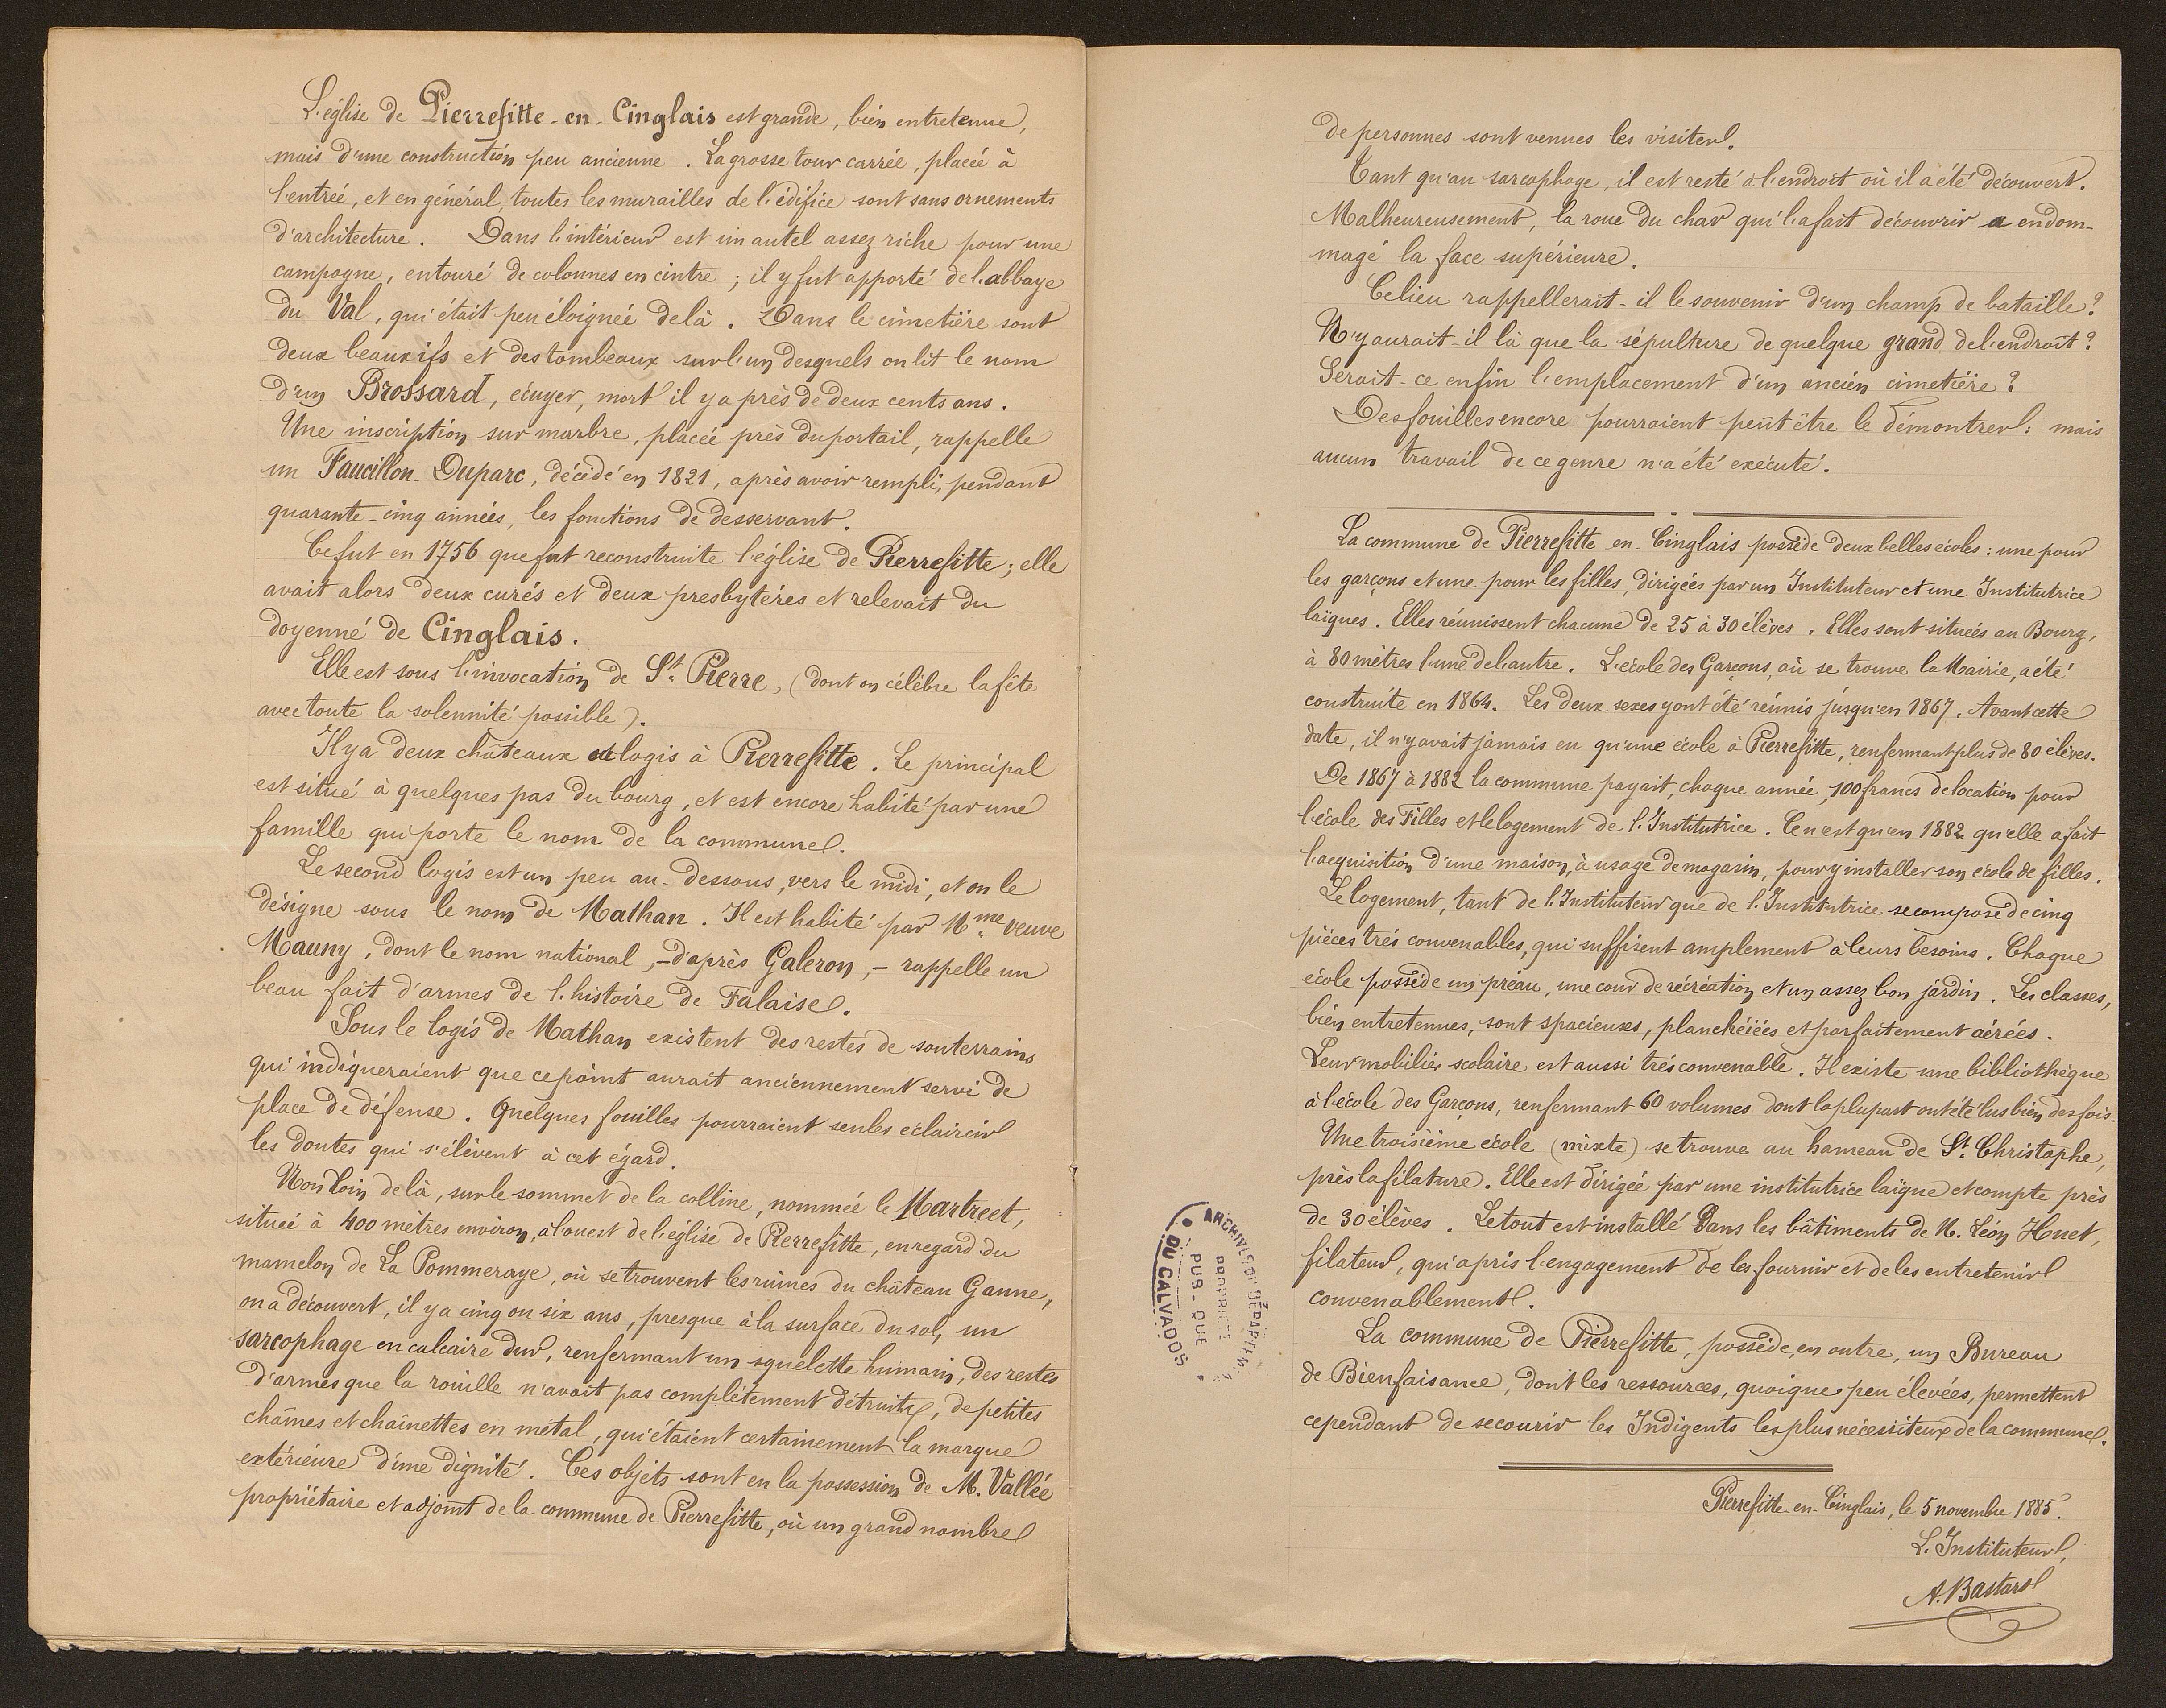 L'église de Pierrefitte-en-Cinglais est grande, bien entretenue,
mais d'une construction peu ancienne. La grosse tour carrée, placée à
l'entrée, et en général, toutes les murailles de l'édifice sont sans ornements
d'architecture. Dans l'intérieur est un autel assez riche pour une
campagne, entouré de colonnes en cintre ; il y fut apporté de l'abbaye
du Val, qui était peu éloignée de là. Dans le cimetière sont
deux beaux ifs et des tombeaux sur l'un desquels on lit le nom
d'un Brossard, écuyer, mort il y a près de deux cents ans.
Une inscription sur marbre, placée près du portail, rappelle
un Faucillon-Duparc, décédé en 1821, après avoir rempli, pendant
quarante-cinq années, les fonctions de desservant.
Ce fut en 1756 que fut reconstruite l'église de Pierrefitte ; elle
avait alors deux curés et deux presbytères et relevait du
doyenné de Cinglais.
Elle est sous l'invocation de St. Pierre, (dont on célèbre la fête
avec toute la solennité possible).
Il y a deux châteaux et logis à Pierrefitte. Le principal
est situé à quelques pas du bourg, et est encore habité par une
famille qui porte le nom de la commune.
Le second logis est un peu au-dessous, vers le midi, et on le
désigne sous le nom de Mathan. Il est habité par Mme veuve
Mauny, dont le nom national, - d'après Galeron, - rappelle un
beau fait d'armes de l'histoire de Falaise.
Sous le logis de Mathan existent des restes de souterrains
qui indiqueraient que ce point aurait anciennement servi de
place de défense. Quelques fouilles pourraient seules éclaircir
les doutes qui s'élèvent à cet égard.
Non loin de là, sur le sommet de la colline, nommée le Martreet,
située à 400 mètres environ, à l'ouest de l'église de Pierrefitte, en regard du
mamelon de La Pommeraye, où se trouvent les ruines du château Ganne,
on a découvert, il y a cinq ou six ans, presque à la surface du sol, un
sarcophage en calcaire dur, renfermant un squelette humain, des restes
d'armes que la rouille n'avait pas complètement détruits, de petites
chaînes et chaînettes en métal, qui étaient certainement la marque
extérieure d'une dignité. Ces objets sont en la possession de M. Vallée
propriétaire et adjoint de la commune de Pierrefitte, où un grand nombre
de personnes sont venues les visiter.
Tant qu'au sarcophage, il est resté à l'endroit où il a été découvert.
Malheureusement, la roue du char qui l'a fait découvrir a endom-
magé la face supérieure.
Ce lieu rappellerait-il le souvenir d'un champ de bataille ?
N'y aurait-il là que la sépulture de quelque grand de l'endroit ?
Serait-ce enfin l'emplacement d'un ancien cimetière ?
Des fouilles encore pourraient peut être le démontrer : mais
aucun travail de ce genre n'a été exécuté.
La commune de Pierrefitte-en-Cinglais possède deux belles écoles : une pour
les garçons et une pour les filles, dirigées par un Instituteur et une Institutrice
laïques. Elles réunissent chacune de 25 à 30 élèves. Elles sont situées au Bourg,
à 80 mètres l'une de l'autre. L'école des Garçons, où se trouve la Mairie, a été
construite en 1864. Les deux sexes y ont été réunis jusqu'en 1867. Avant cette
date, il n'y avait jamais eu qu'une école à Pierrefitte, renfermant plus de 80 élèves.
De 1867 à 1882 la commune payait, chaque année, 100 francs de location pour
l'école des Filles et le logement de l'Institutrice. Ce n'est qu'en 1882 qu'elle a fait
l'acquisition d'une maison, à usage de magasin, pour y installer son école de filles.
Le logement, tant de l'Instituteur que de l'Institutrice se compose de cinq
pièces très convenables, qui suffisent amplement à leurs besoins. Chaque
école possède un préau, une cour de récréation et un assez bon jardin. Les classes,
bien entretenues, sont spacieuses, planchéiées et parfaitement aérées.
Leur mobilier scolaire est aussi très convenable. Il existe une bibliothèque
à l'école des Garçons, renfermant 60 volumes dont la plupart ont été lus bien des fois.
Une troisième école (mixte) se trouve au hameau de St. Christophe,
près la filature. Elle est dirigée par une institutrice laïque et compte près
de 30 élèves. Le tout est installé dans les bâtiments de M. Léon Huet,
filateur, qui a pris l'engagement de les fournir et de les entretenir
convenablement.
La commune de Pierrefitte, possède, en outre, un Bureau
de Bienfaisance, dont les ressources, quoique peu élevées, permettent
cependant de secourir les Indigents les plus nécessiteux de la commune.
Pierrefitte-en-Cinglais, le 5 novembre 1885.
L'Instituteur,
A. Bastard
ARCHIVES DÉPARTEM.
PROPRIÉTÉ
PUB-QUE
DU CALVADOS